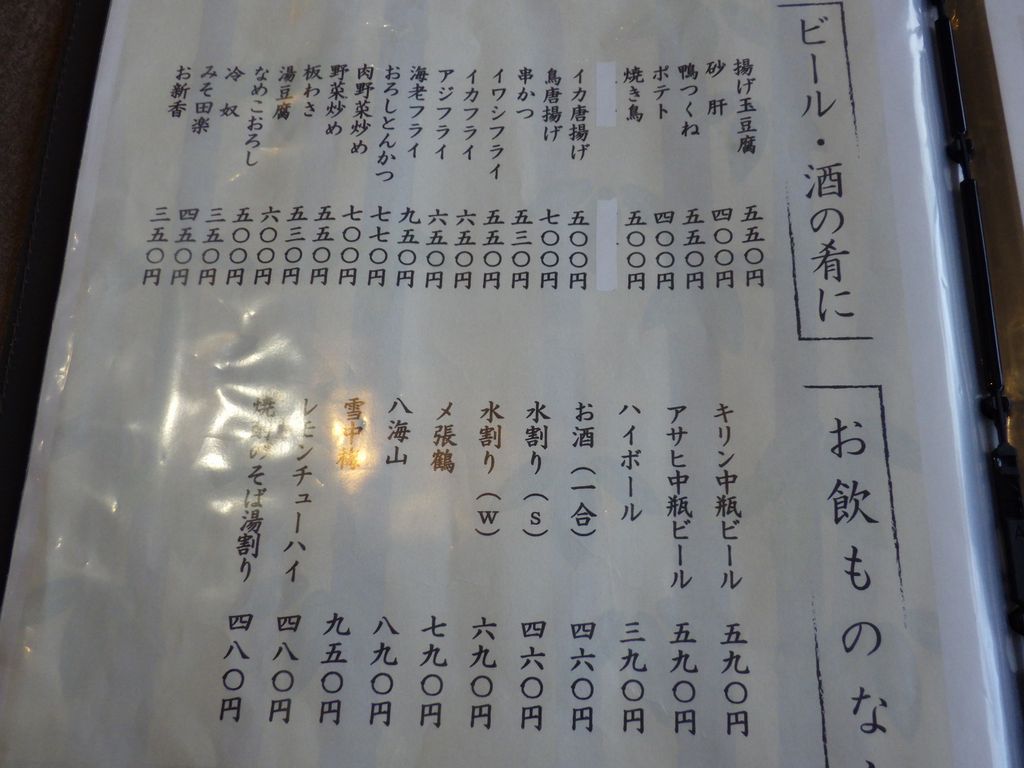 ビール・酒の肴に
揚げ玉豆腐 五五〇円
砂肝 四〇〇円
鴨つくね 五五〇円
ポテト 四〇〇円
焼き鳥 五〇〇円
イカ唐揚げ 五〇〇円
鳥唐揚げ 七〇〇円
串かつ 五三〇円
イワシフライ 五五〇円
イカフライ 六五〇円
アジフライ 六五〇円
海老フライ 九五〇円
おろしとんかつ 七七〇円
肉野菜炒め 七〇〇円
野菜炒め 五五〇円
板わさ 五三〇円
湯豆腐 六〇〇円
なめこおろし 五〇〇円
冷奴 三五〇円
みそ田楽 四五〇円
お新香 三五〇円
お飲ものな
キリン中瓶ビール 五九〇円
アサヒ中瓶ビール 五九〇円
ハイボール 三九〇円
お酒（一合） 四六〇円
水割り（s） 四六〇円
水割り（w） 六九〇円
〆張鶴 七九〇円
八海山 八九〇円
雪中梅 九五〇円
レモンチューハイ 四八〇円
焼酎のそば湯割り 四八〇円